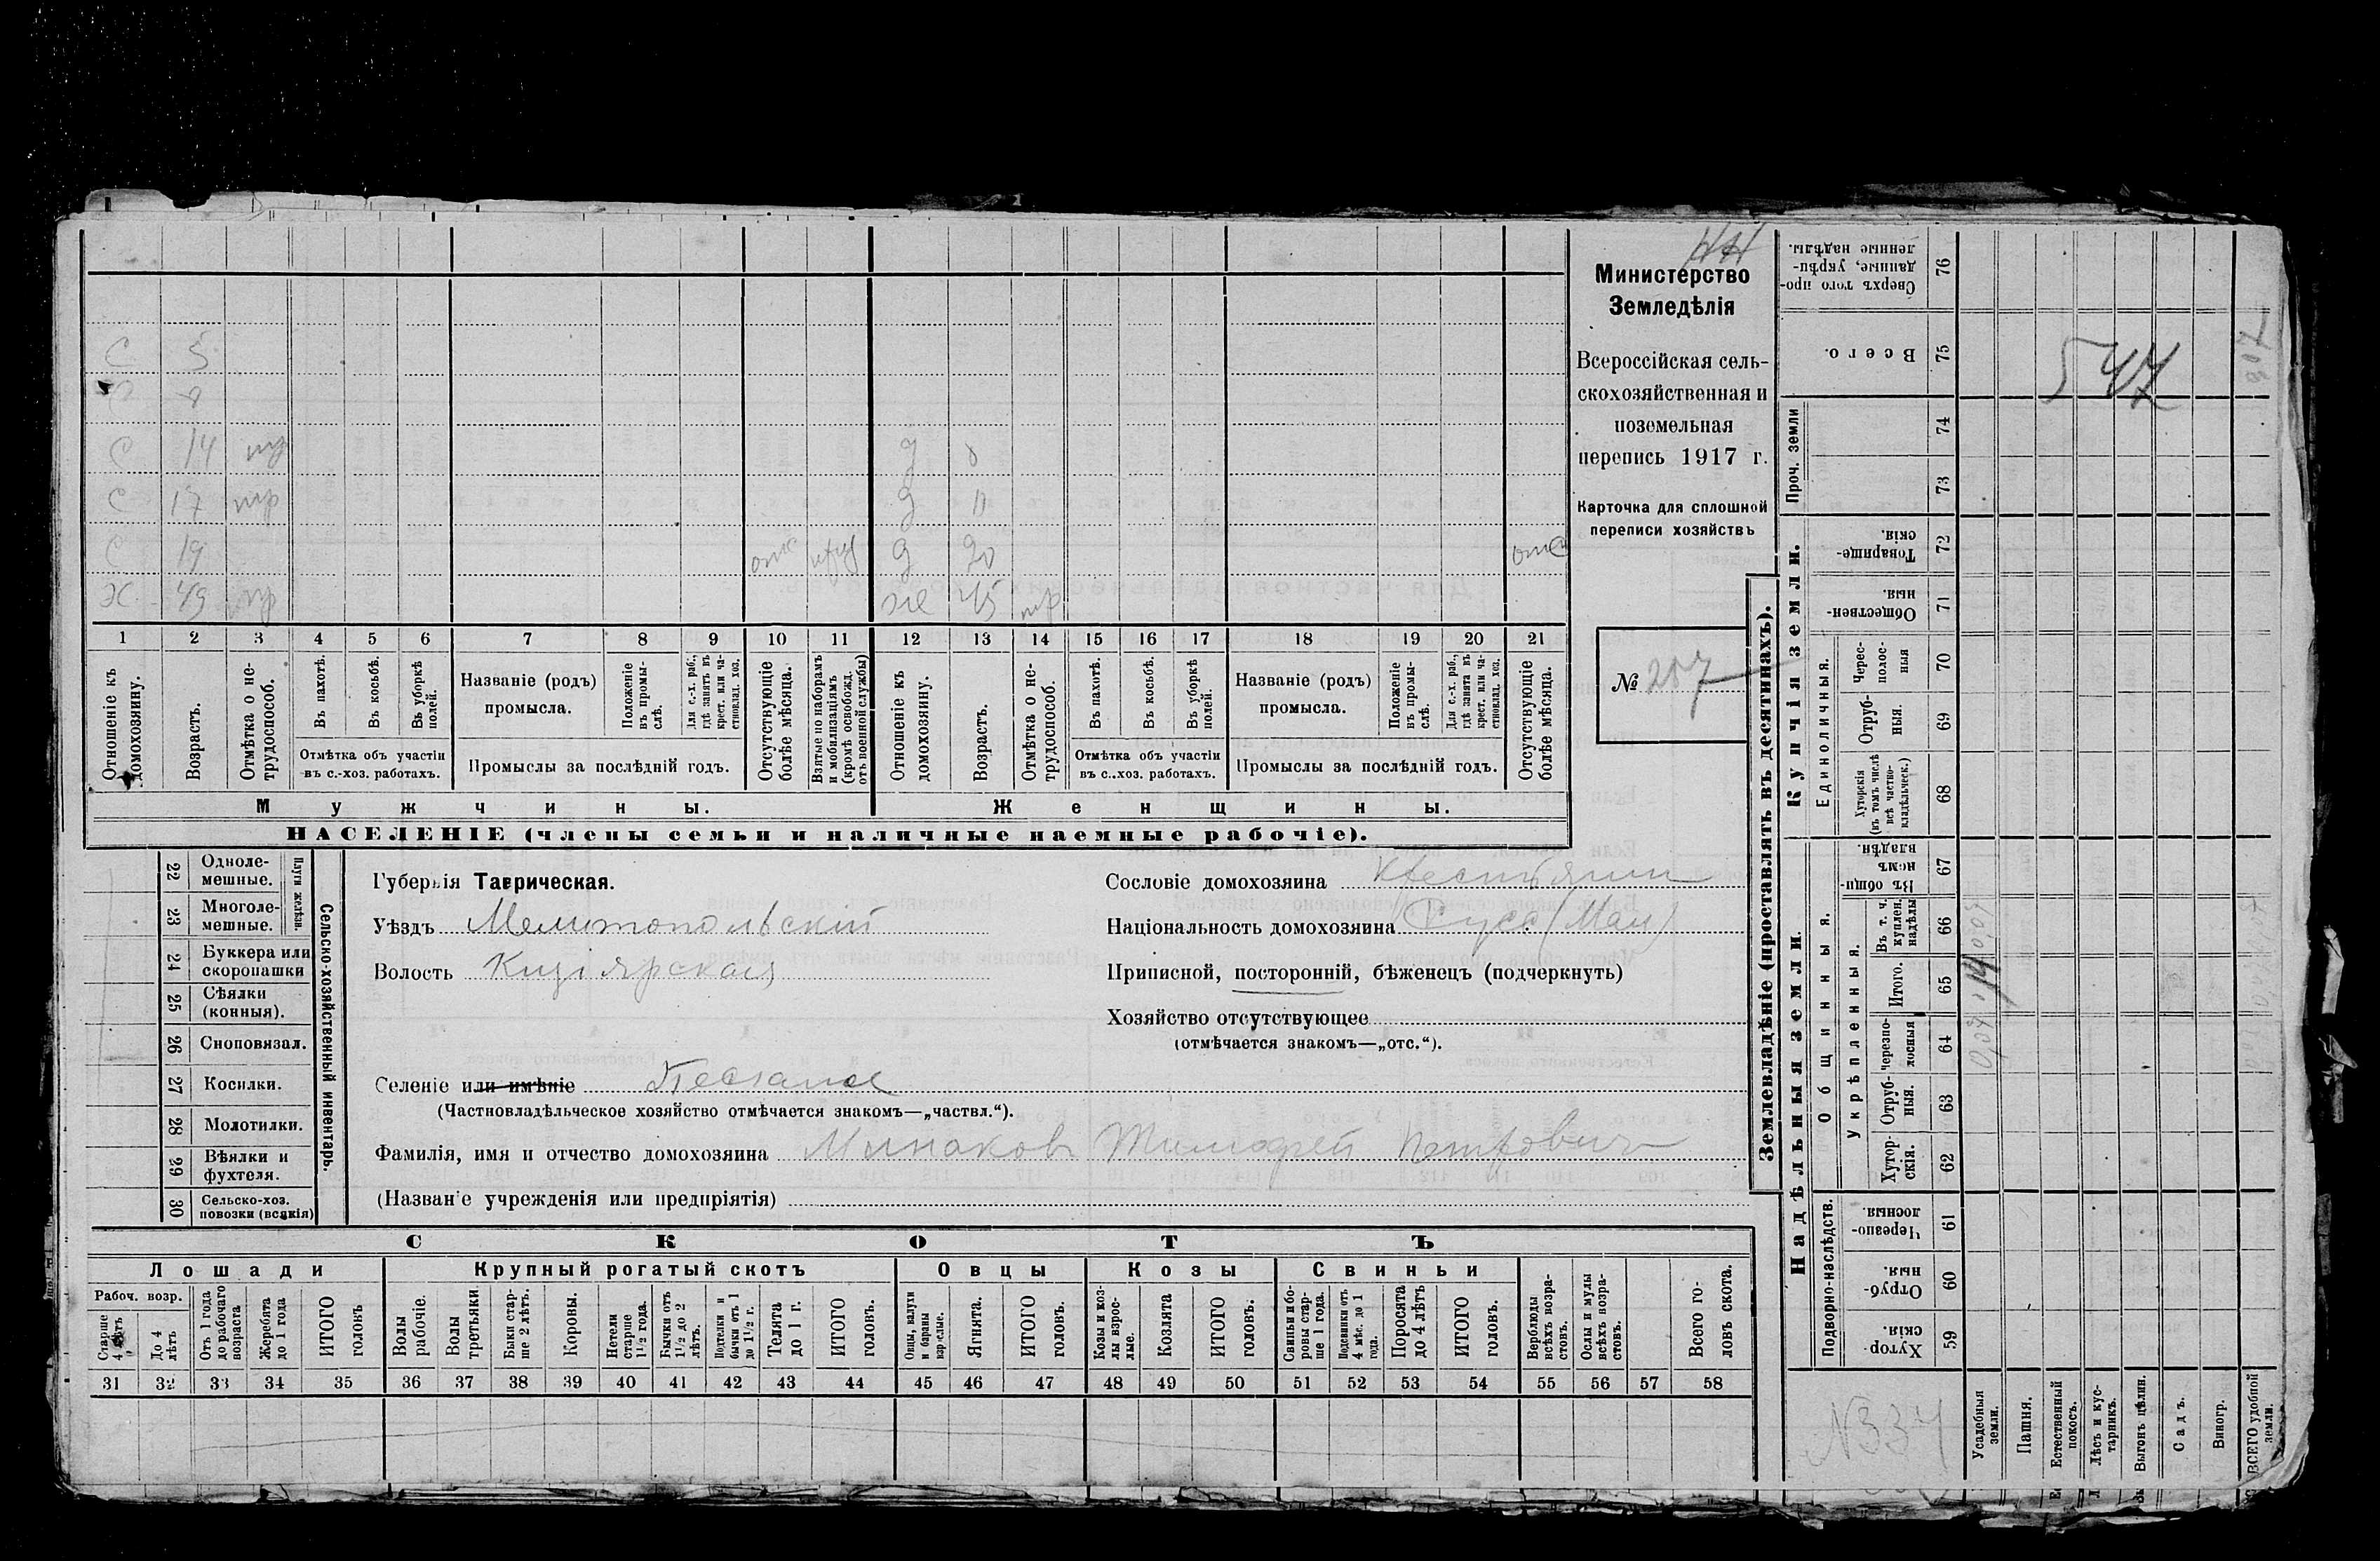 Министерство
Земледѣлія
Всероссійская сель-
скохозяйственная и
поземельная
перепись 1917 г.
Карточка для сплошной
переписи хозяйствъ
№ 257
547
С 5
С 8
С 14 пр д 8
С 17 пр д 11
С 19 отс д 20 отс
Х 49 пр же 45 пр
1 2 3 4 5 6 7 8 9 10 11 12 13 14 15 16 17 18 19 20 21
Отношеніе къ домохозяину.
Возрастъ.
Отмѣтка о не-трудоспособ.
Въ пахотѣ.
Въ косьбѣ.
Въ уборкѣ полей.
Отмѣтка объ участіи
въ с.-хоз. работахъ.
Названіе (родъ)
промысла.
Положеніе въ промы-слѣ.
Для с.-х. раб., гдѣ занятъ въ крест. или ча-стновлад. хоз.
Промыслы за послѣдній годъ.
Отсутствующіе болѣе мѣсяца.
Взятые по наборамъ и мобилизаціямъ (кромѣ освобожд. отъ военной службы)
Отношеніе къ домохозяину.
Возрастъ.
Отмѣтка о не-трудоспособ.
Въ пахотѣ.
Въ косьбѣ.
Въ уборкѣ полей.
Отмѣтка объ участіи
въ с..хоз. работахъ.
Названіе (родъ)
промысла.
Положеніе въ промы-слѣ.
Для с.-х. раб., гдѣ занята въ крест. или ча-стновлад. хоз.
Промыслы за послѣдній годъ.
Отсутствующіе болѣе мѣсяца.
Мужчины. Женщины.
НАСЕЛЕНІЕ (члены семьи и наличные наемные рабочіе).
Сельско-хозяйственный инвентарь.
Плуги желѣзн.
22 Одноле-мешные.
23 Многоле-мешные.
24 Буккера или скоропашки
25 Сѣялки (конныя).
26 Сноповязал.
27 Косилки.
28 Молотилки.
29 Вѣялки и фухтеля.
30 Сельско-хоз. повозки (всякія)
Губернія Таврическая.
Уѣздъ Мелитопольскій
Волость Кизіярская
Селеніе или имѣніе Песчаное
(Частновладѣльческое хозяйство отмѣчается знакомъ—„частвл.“).
Фамилія, имя и отчество домохозяина Минаковъ Тимофей Петровичъ
(Названіе учрежденія или предпріятія)
Сословіе домохозяина Крестьянин
Національность домохозяина Русс (Мал)
Приписной, посторонній, бѣженецъ (подчеркнуть)
Хозяйство отсутствующее
(отмѣчается знакомъ—„отс.“).
СКОТЪ
Лошади Крупный рогатый скотъ Овцы Козы Свиньи
Рабоч. возр.
Старше 4 лѣтъ
До 4 лѣтъ
Отъ 1 года до рабочаго возраста
Жеребята до 1 года
ИТОГО головъ
Волы рабочіе.
Волы третьяки
Быки стар-ше 2 лѣтъ.
Коровы.
Нетели старше 1½ года.
Бычки отъ 1½ до 2 лѣтъ.
Подтелки и бычки отъ 1 до 1½ г.
Телята до 1 г.
ИТОГО головъ.
Овцы, валухи и бараны взрослые.
Ягнята.
ИТОГО головъ.
Козы и коз-лы взрос-лые.
Козлята
ИТОГО головъ.
Свиньи и бо-ровы стар-ше 1 года.
Подсвинки отъ 4 мѣс. до 1 года.
Поросята до 4 лѣтъ
ИТОГО головъ.
Верблюды всѣхъ возра-стовъ.
Ослы и мулы всѣхъ возра-стовъ.
Всего го-ловъ скота.
31 32 33 34 35 36 37 38 39 40 41 42 43 44 45 46 47 48 49 50 51 52 53 54 55 56 57 58
Землевладѣніе (проставлять въ десятинахъ).
Купчія земли.
Надѣльныя земли.
Сверхъ того про-данные, укрѣп-ленные надѣлы. 76
Всего. 75
Проч. земли 74 73
Товарище-скія. 72
Обществен-ныя. 71
Единоличныя.
Черес-полос-ныя 70
Отруб-ныя. 69
Хуторскія (въ томъ числѣ всѣ частно-владѣльческ.) 68
Общинныя.
Укрѣпленныя.
Въ общи-номъ владѣн. 67
Въ т. ч. куплен. надѣлы 66
Итого. 65
черезпо-лосныя 64
Отруб-ныя. 63
Хутор-скія. 62
Подворно-наслѣдств.
Черезпо-лосныя. 61
Отруб-ныя. 60
Хутор-скія. 59
N334
Усадебныя земли.
Пашня.
Естественный покосъ.
Лѣсъ и кус-тарникъ.
Выгонъ цѣлин.
Садъ.
Виногр.
ВСЕГО удобной земли.